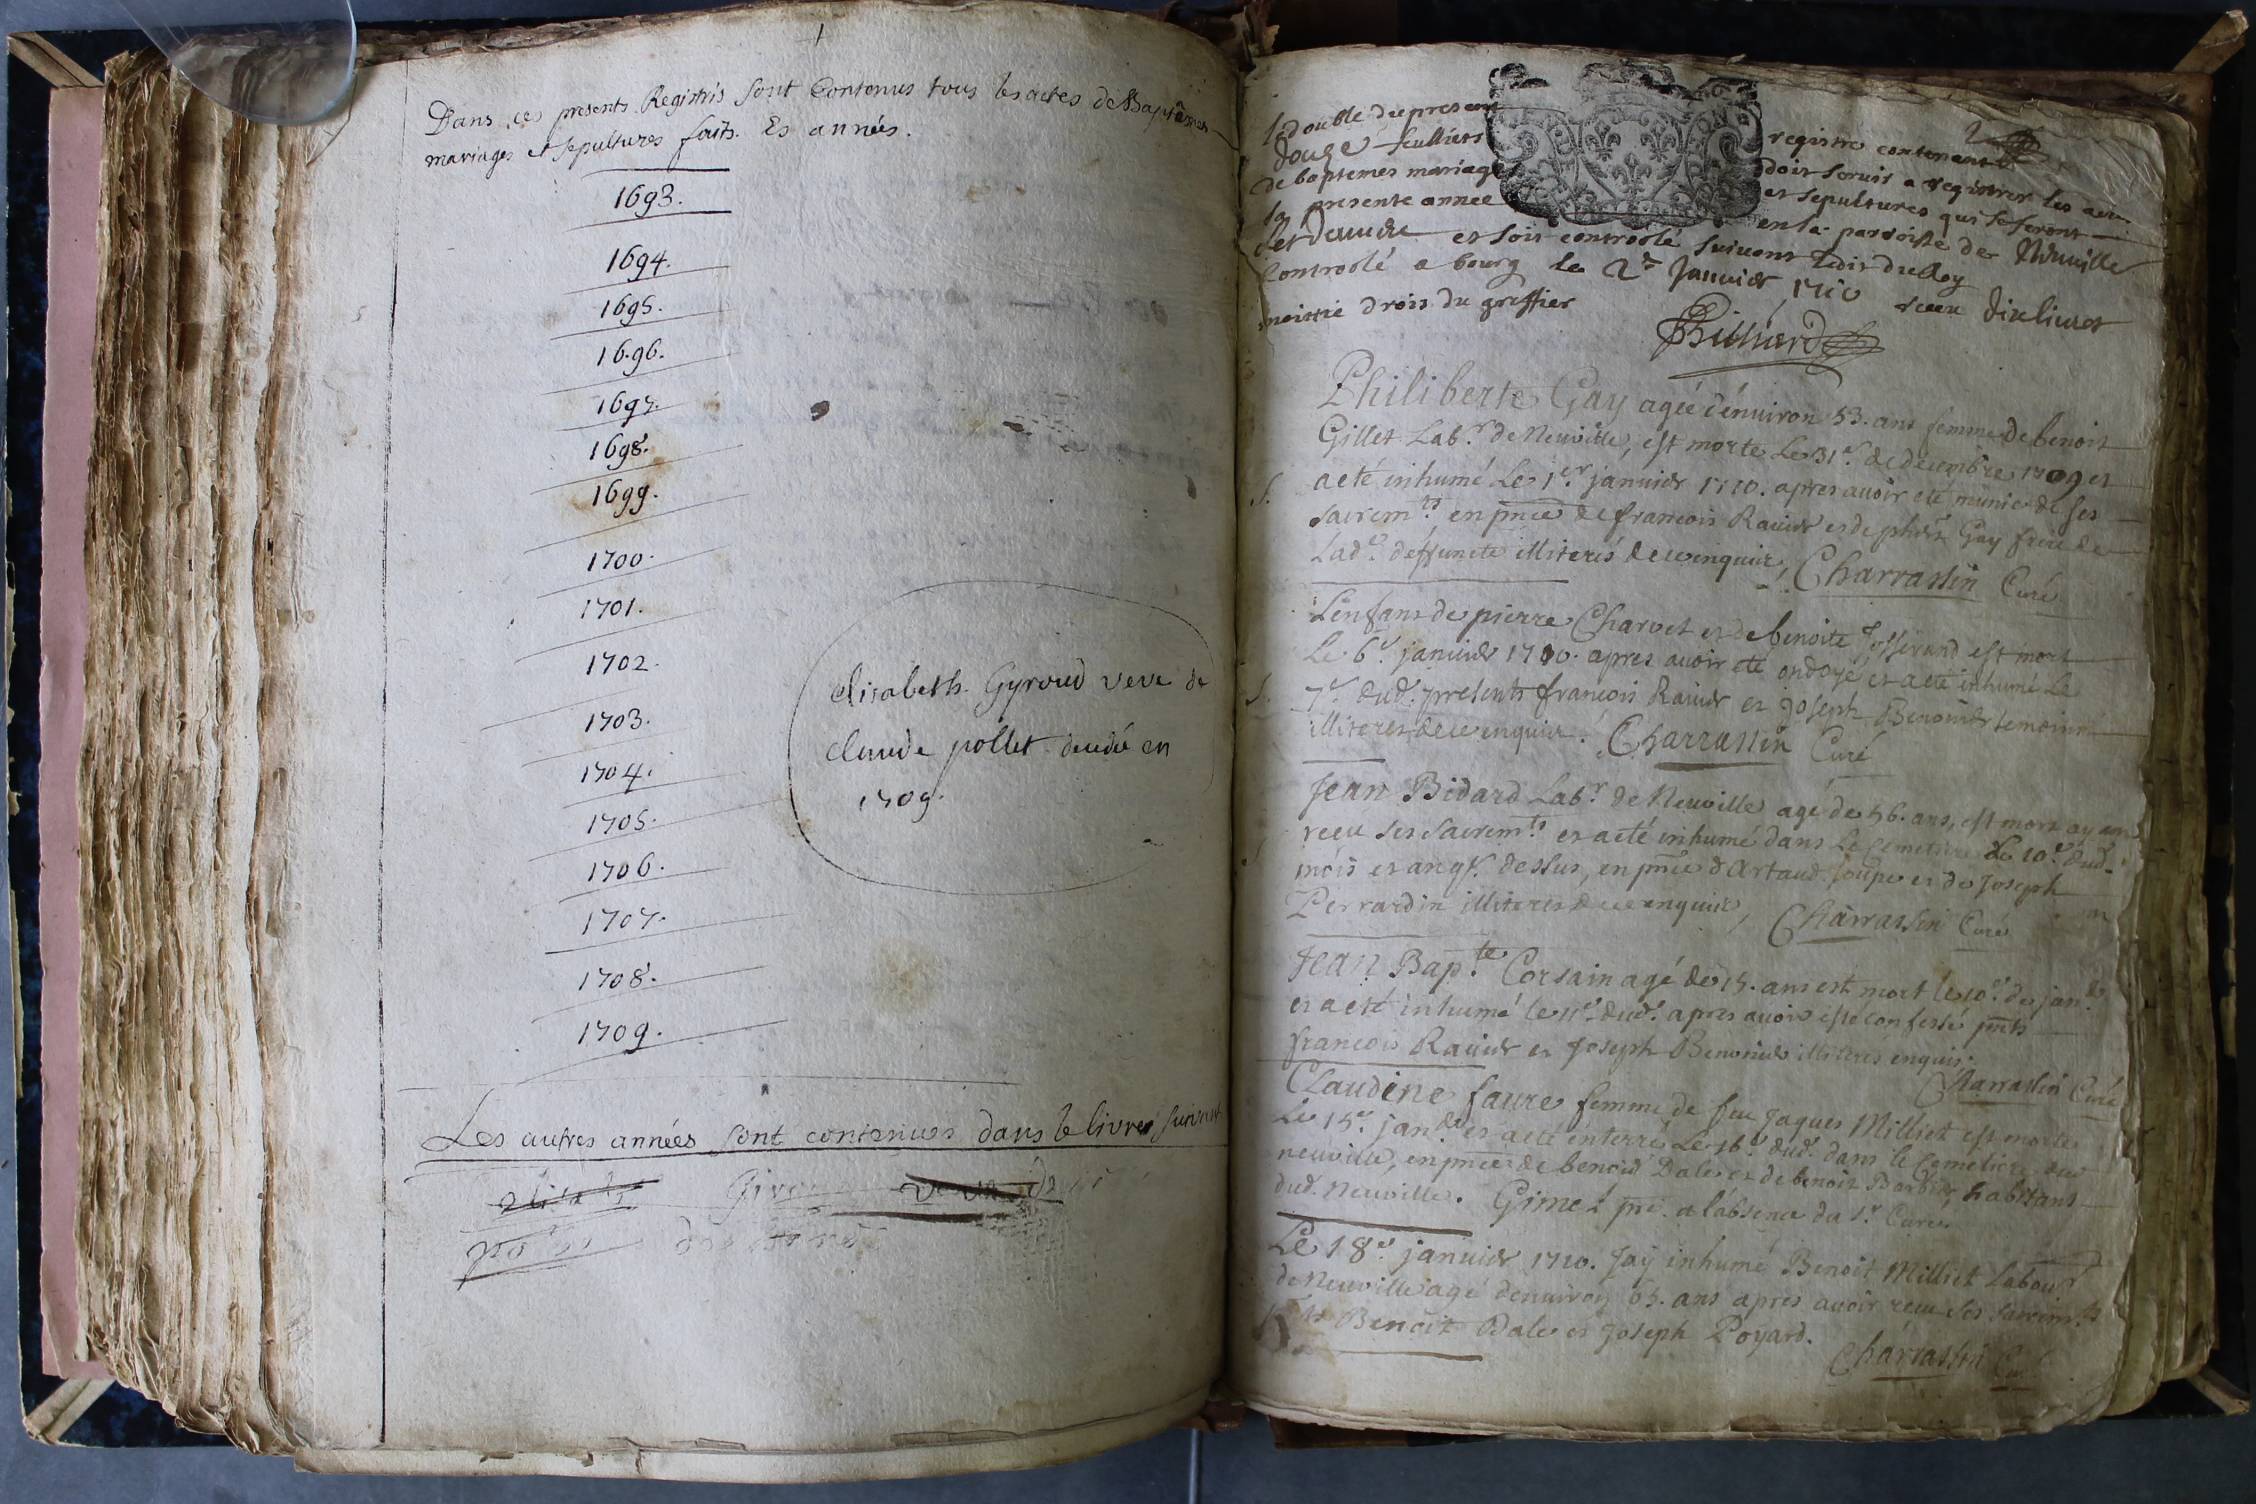 Dans ces presents Registris sont Contenus tous les actes de Baptêmes
mariages et sepultures faits. Es années.
1693.
1694.
1695.
1696.
1697.
1698.
1699.
1700.
1701.
1702.
1703.
1704.
1705.
1706.
1707.
1708.
1709.
elisabeth Gyroud veve de
claude pollet decedé en
1709.
Les autres années sont contenues dans le livre suivant
2
le double du present registre contenant
douze feulliets doit servir a registrer les actes
de baptemes mariages et sepultures qui se feront
la presente annee en la parroisse de Neuville
les Dames et sois controolé suivant Ledit du Roy
Controolé a bourg le 2e Janvier 1710 receu dix livres
moittié drois du greffier
Philiberte Gay ageé d'environ 53. ans femme de benoit
Gillet Labr de Neuville, est morte Le 31e. de decembre 1709 et
a eté inhumé Le 1er. janvier 1710. apres avoir eté munie de ses
S.
sacremts en pnce de francois Ravier et de Gay frere de
Lade. deffuncte illiterés de ce enquis, Charrassin Curé
Lenfant de pierre Charvet et de benoite Josserand est mort
Le 6e. janvier 1710. apres avoir eté ondoyé, et a eté inhumé Le
S.
7e. dud. presents francois Ravier et Joseph Benonier temoins
illiteres de ce enquis. Charrassin Curé
Jean Bidard Labr. de Neuville agé de 56. ans, est mort ayant
receu ses sacremts. et a eté inhumé dans Le Cemetiere Le 10e. dud.
mois et an q. dessus, en pnce d'Artaud Loupe et de Joseph
Perrardin illiteres de ce enquis, Charrassin Curé
Jean Bapte. Corsain agé de 15. ans est mort le 10e. de janr.
et a eté inhumé le 11e. dud. apres avoir esté confessé pnts
francois Ravier et Joseph Benonier illiterés enquis.
Charrassin Curé
Claudine faure femme de feu Jaques Milliet est morte
Le 15e. janr. et a eté enterré Le 16e. dud. dans le Cemetiere de
neuville, en pnce de benoit Dale et de benoit Barbier, habitans
dud. Neuville. Gimel pre. a l'absence du Sr. Curé
Le 18e. janvier 1710. Jaÿ inhumé Benoit Milliet Labour
de Neuville agé denviron 65. ans apres avoir receu ses sacremts
pnts Benoit Dale et Joseph Poyard.
Charrassin Curé